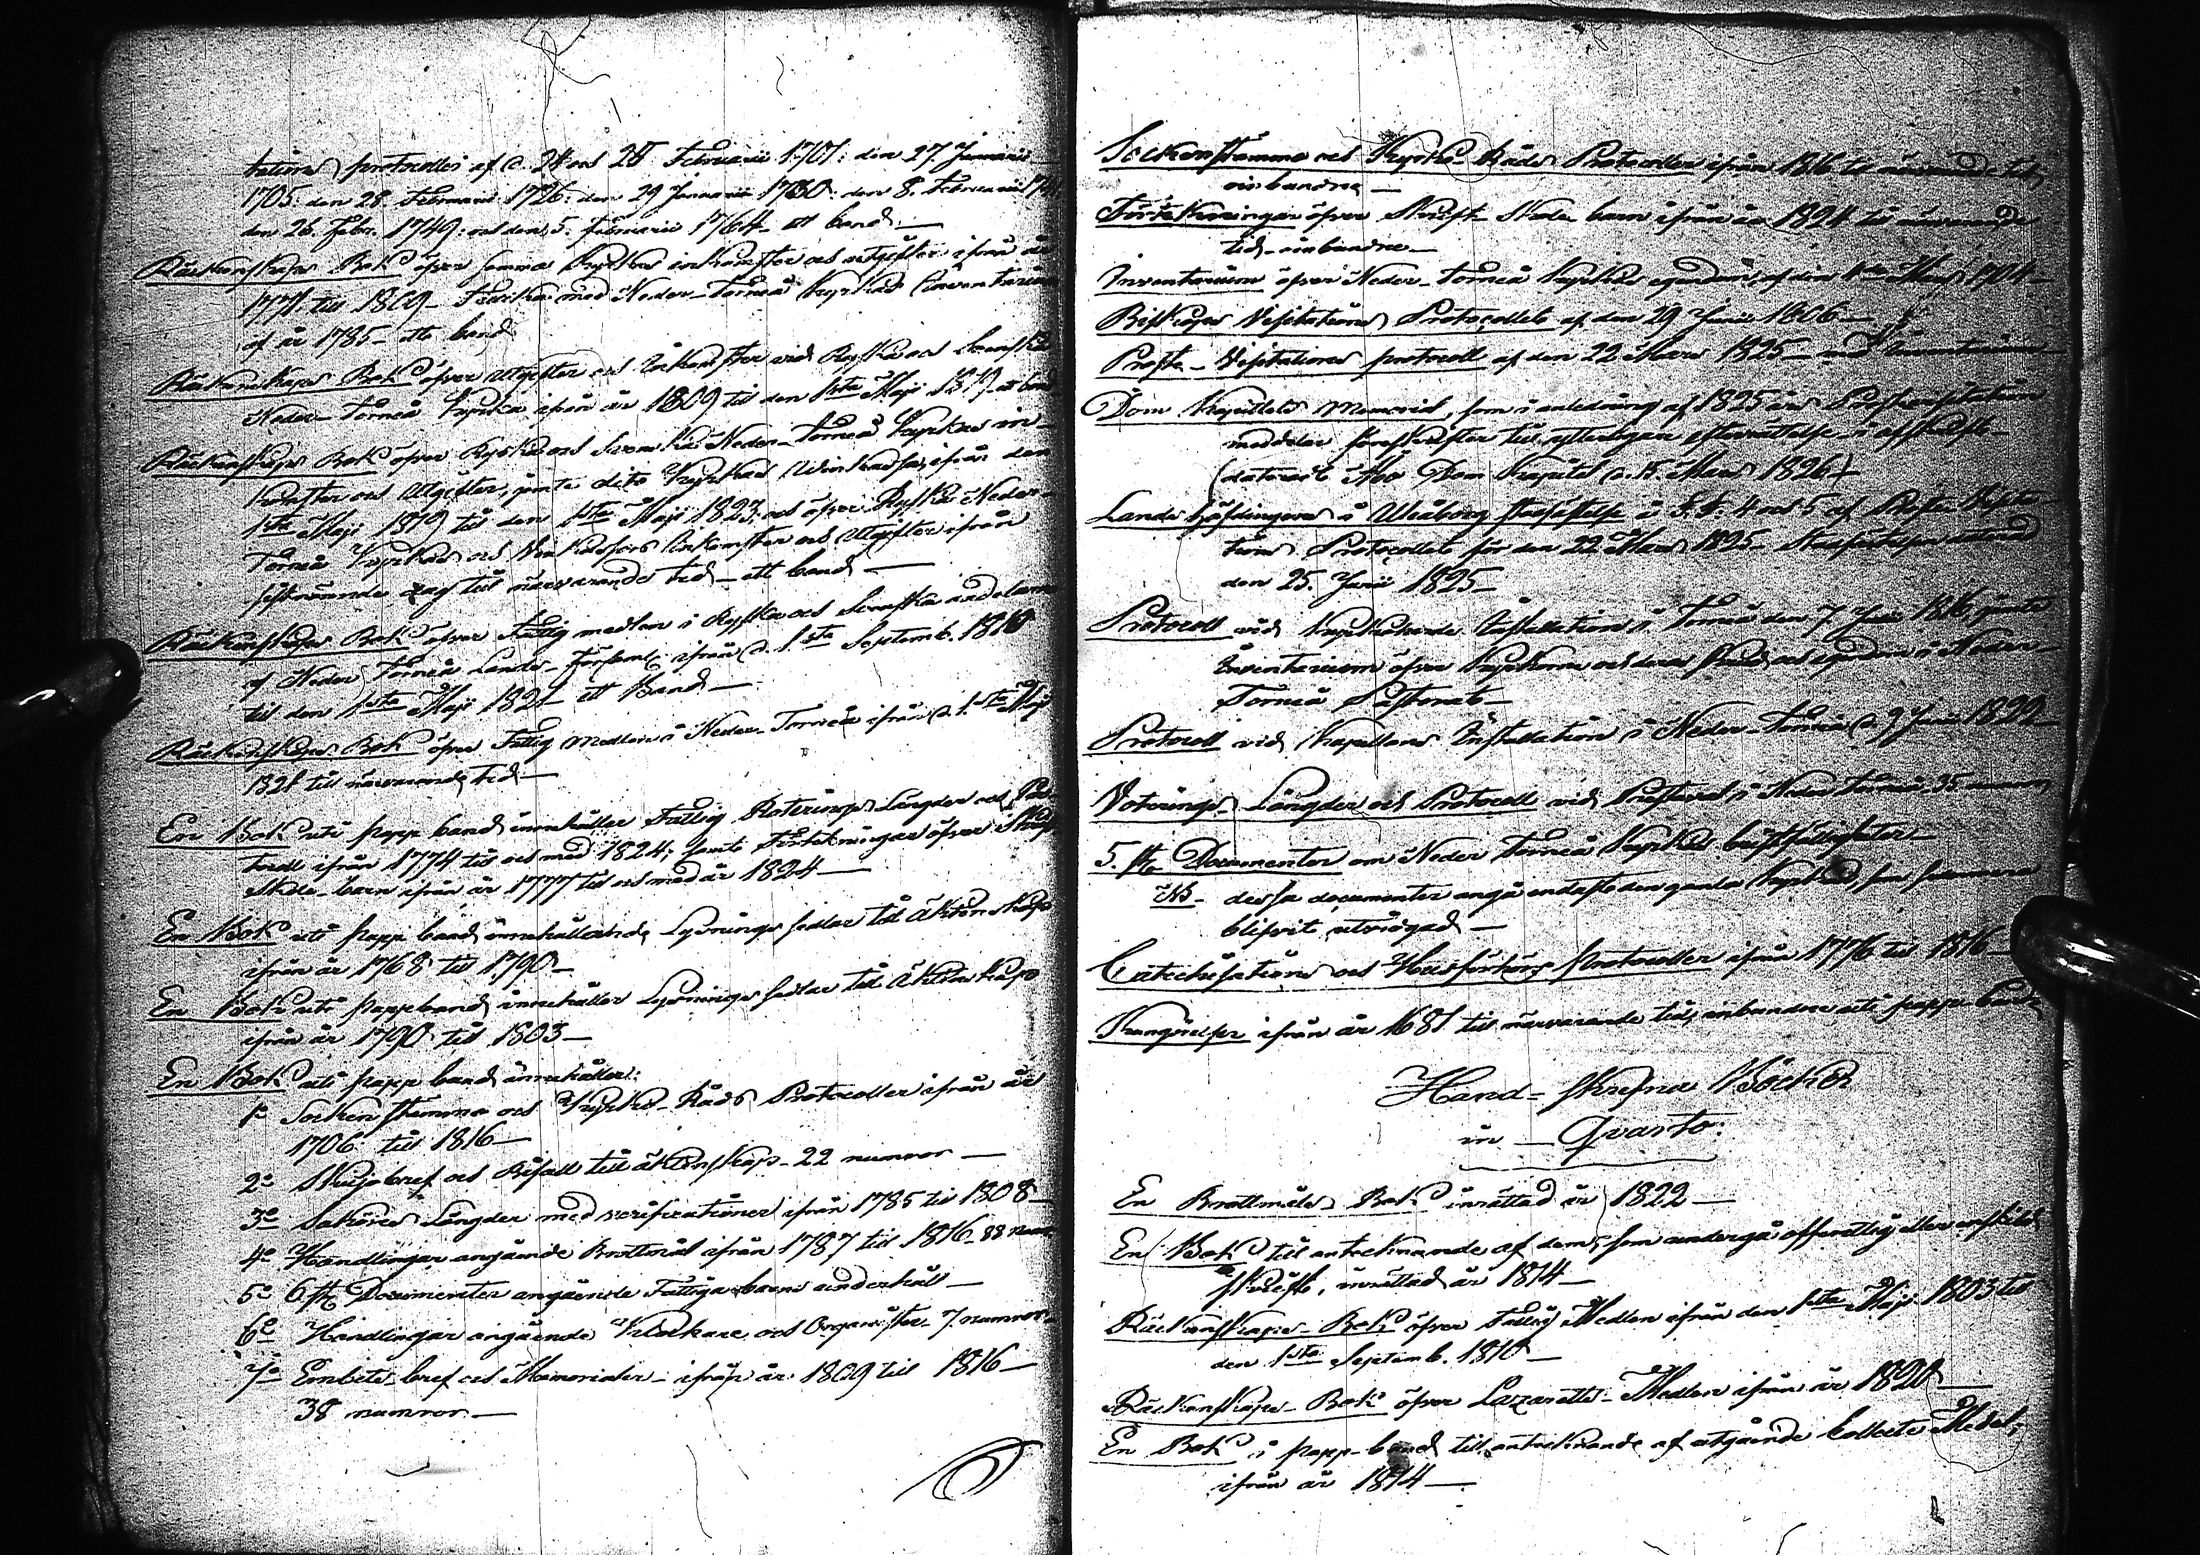 tations protocoller af d. 24 och 28 Februarii 1701: den 27. Januarii
1705: den 28. Februarii 1726: den 29 Januarii 1730: den 8. Februarii
den 26. Febr. 1749: och den 5. Februarii 1764 – ett band. —
Räkenskaps Bok öfver samma Kyrkas inkomster och utgifter ifrån år
1771 till 1809 – Tillika med Neder-Torneå Kyrkas Inventarium
af år 1785 – ett band
Räkenskaps Bok öfver utgifter och Inkomster vid Ryska och Svenska
Neder-Torneå Kyrka ifrån år 1809 til den 1sta Maji 1819, ett band
Räkenskaps Bok öfver Ryska och Svenska Neder-Torneå Kyrkas in-
komster och Utgifter, jemte dito Kyrkas ifrån den
1sta Maji 1819 til den 1sta Maji 1823: och öfver Ryska Neder-
Torneå Kyrkas och Inkomster och Utgifter ifrån
sistnämnde dag till närvarande tid – ett band —
Räkenskaps Bok öfver Fattig medlen i Ryska och Svenska andelarne
af Neder Torneå Lands-Församl: ifrån d. 1sta Septemb. 1810
till den 1sta Maji 1821 – ett Band —
Räkenskaps Bok öfver Fattig Medlen i Neder-Torneå ifrån d. 1sta Maji
1821 till närvarande tid —
En Bok uti papp band innehåller Fattig Roterings Längder och Proto-
coll ifrån 1774 till och med 1824; samt Förtekningar öfver
Skede-barn ifrån år 1777 till och med år 1824 —
En Bok uti papp band innehållande Lysnings sedlar till Äktenskap
ifrån år 1768 till 1790 —
En Bok uti pappband innehåller Lysnings sedlar till Äktenskap
ifrån år 1790 till 1803 —
En Bok uti papp band innehåller:
1o Sockenstemmo och Kyrko-Råds Protocoller ifrån år
1706 till 1816 —
2o Skiljobref och Bifall till äktenskap – 22 numror —
3o Saköres Längder med verificationer ifrån 1785 til 1808 —
4o Handlingar angående Brottmål ifrån 1787 till 1816 – 88 num.
5o 6 st. Documenter angående Fattiga barns underhåll —
6o Handlingar angående Klockare och Organister – 7. numror –
7o Embets-bref och Memorialer – ifrån år 1809 till 1816 —
38 numror. —
Sockenstämmo och Kyrko-Råds Protocoller ifrån 1816 til närvarande tid,
inbandne —
Förtekningar öfver Skrift-Skole barn ifrån år 1824 till närvarande
tid – inbandne —
Inventarium öfver Neder-Torneå Kyrkas egendom, af den 1704 —
Biskops Visitations Protocollet af den 29 Junii 1806 —
Prosts-Visitations protocoll af den 22 Mars 1825 – med Inventarium
Dom Kapitlets Memorial, som i anledning af 1825 års Prostvisitation
meddelar föreskrifter till ytterligare efterrättelse – i afskrift —
(daterad Åbo Dom Kapitel d. 15. Mars 1826)
Lands Höfdingens i Uleåborg fastställelse å §.§. 4 och 5 af Prosts Visita-
tions Protocollet för den 22 Mars 1825 – daterad
den 25. Junii 1825 –
Protocoll vid Kyrkoherde Installation i Torneå den 7 Julii 1816, jemte
Inventarium öfver Kyrkorne och deras skrud och egendom i Neder-
Torneå Pastorat —
Protocoll vid Kapellans Installation i Neder-Torneå d. 9 Junii 1822 —
Voterings Längder och Protocoll vid Prestval i Neder Torneå, 35 numror
5. st. Documenter om Neder Torneå Kyrkas bristfälligheter —
NB – dessa documenter angå endast den gamla Kyrkan, som sedermera
blifvit utvidgad —
Catechisations och Husförhörs protocoller ifrån 1776 till 1816 —
Kungörelser ifrån år 1681 till närvarande tid, inbundne uti papp-band
Hand-skrifna Böcker
in – Qvarto:
En Brottmåls Bok inrättad år 1822 —
En Bok till antecknande af dem, som undergå offentlig eller enskild
skrift, inrättad år 1814 —
Räkenskaps-Bok öfver Fattig Medlen ifrån den 1sta Maji 1803 till
den 1sta Septemb. 1810 —
Räkenskaps-Bok öfver Lazaretts-Medlen ifrån år 1820 —
En Bok i papp-band till antecknande af utgående Collecte Medel,
ifrån år 1814 —